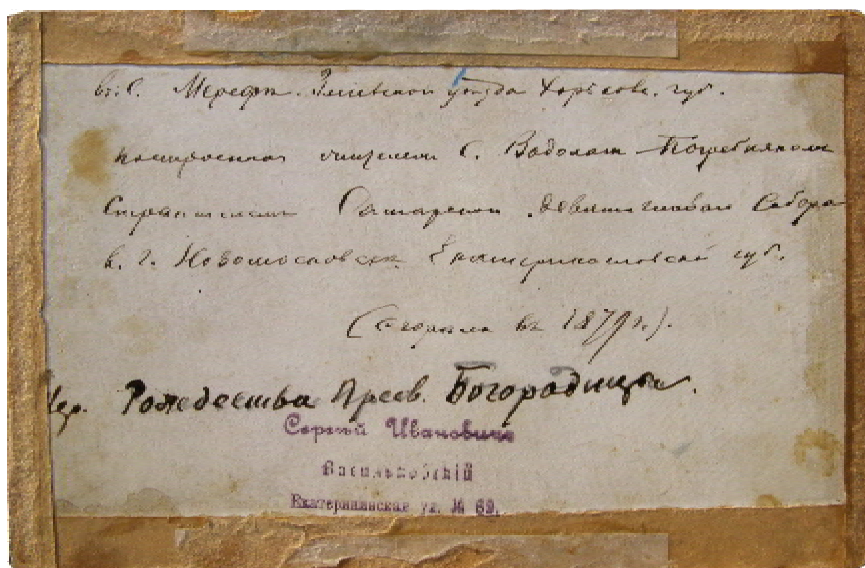 въ С. Мерефѣ. Зміевскаго уѣзда Харьков. губ.
построенная С. Водолаг Погребнякомъ
девятиглаваго Собора
в. г. Новомосковскѣ Екатеринославской губ.
(Сгорѣла въ 1879 г.).
Цер. Рождества Пресв. Богородицы.
Сергѣй Ивановичъ
Васильковскій
Екатерининская ул. № 69.